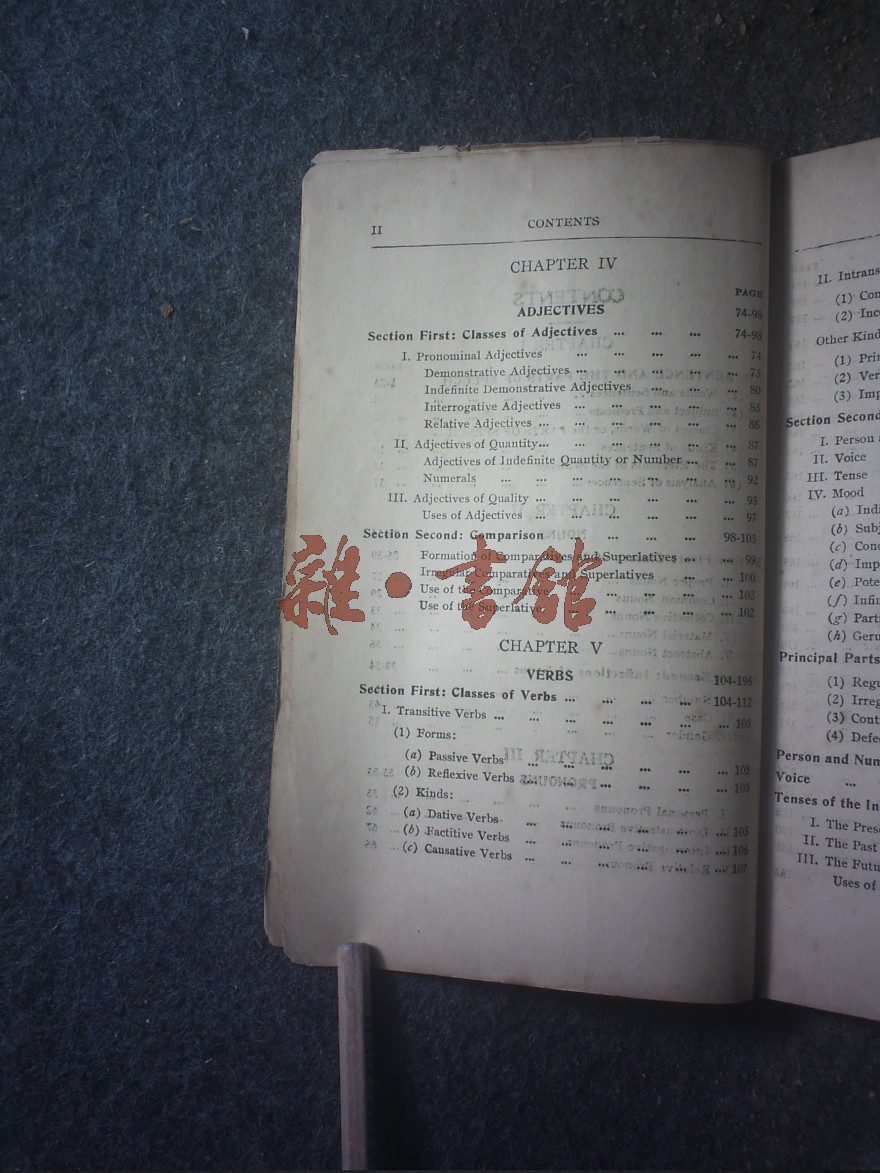 II CONTENTS
CHAPTER IV
PAGE
ADJECTIVES 74-98
Section First: Classes of Adjectives ... ... ... 74-98
I. Pronominal Adjectives ... ... ... ... ... 74
Demonstrative Adjectives ... ... ... ... ... 75
Indefinite Demonstrative Adjectives ... ... ... 80
Interrogative Adjectives ... ... ... ... ... 85
Relative Adjectives ... ... ... ... ... ... 86
II. Adjectives of Quantity... ... ... ... ... ... 87
Adjectives of Indefinite Quantity or Number ... ... 87
Numerals ... ... ... ... ... ... ... 92
III. Adjectives of Quality ... ... ... ... ... ... 93
Uses of Adjectives ... ... ... ... ... ... 97
Section Second: Comparison ... ... ... ... 98-103
Formation of Comparatives and Superlatives ... ... 99
Irregular Comparatives and Superlatives ... ... 100
Use of the Comparative ... ... ... ... ... 102
Use of the Superlative ... ... ... ... ... 102
雜·書館
CHAPTER V
VERBS 104-196
Section First: Classes of Verbs ... ... ... ... 104-112
I. Transitive Verbs ... ... ... ... ... ... ... 105
(1) Forms:
(a) Passive Verbs ... ... ... ... ... ... 105
(b) Reflexive Verbs ... ... ... ... ... ... 105
(2) Kinds:
(a) Dative Verbs ... ... ... ... ... ... 105
(b) Factitive Verbs ... ... ... ... ... ... 106
(c) Causative Verbs ... ... ... ... ... ... 107
II. Intrans
(1) Con
(2) Inc
Other Kind
(1) Prin
(2) Ver
(3) Imp
Section Second
I. Person
II. Voice
III. Tense
IV. Mood
(a) Indi
(b) Subj
(c) Cond
(d) Imp
(e) Pote
(f) Infin
(g) Part
(h) Geru
Principal Parts
(1) Regu
(2) Irreg
(3) Cont
(4) Defe
Person and Num
Voice ...
Tenses of the In
I. The Pres
II. The Past
III. The Futu
Uses of